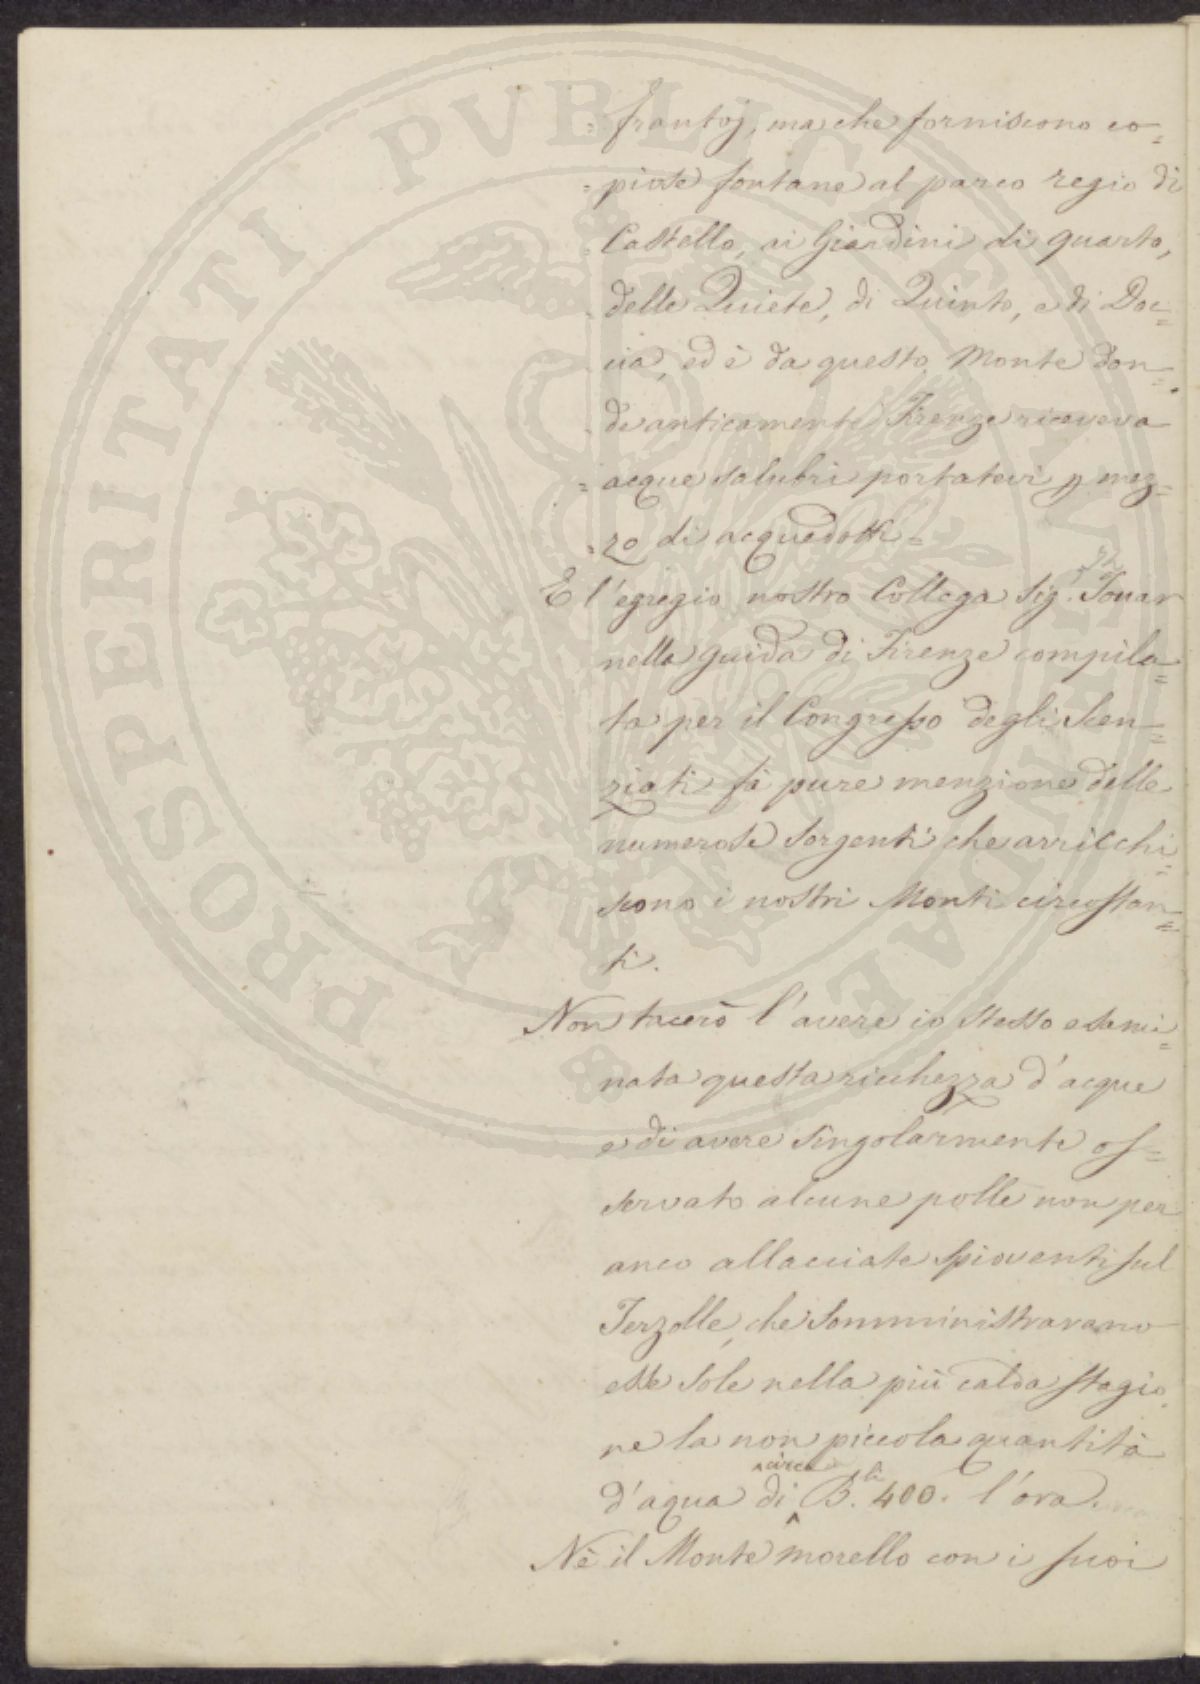 = frantoj, ma che forniscono co=
= piose fontane al parco regio di
= Castello, ai Giardini di quarto,
= delle Quiete, di Quinto, e di Doc=
= cia, ed è da questo Monte don=
= de anticamente Firenze riceveva
= acque salubri portatevi p mez=
= zo di acquedotti =
E l'egregio nostro Collega Sig.r Touar
nella guida di Firenze compila=
ta per il Congresso degli Scen=
ziati fà pure menzione delle
numerose sorgenti che arricchi=
scono i nostri Monti circostan=
ti.
Non tacerò l'avere io stesso esami=
nata questa ricchezza d'acque
e di avere singolarmente os=
servato alcune polle non per
anco allacciate spioventi sul
Terzolle, che somministravano
esse sole nella più calda stagio=
ne la non piccola quantità
d'aqua di circa B.li 400. l'ora.
Nè il Monte morello con i suoi
PROSPERITATI PVBLICAE AVGENDAE